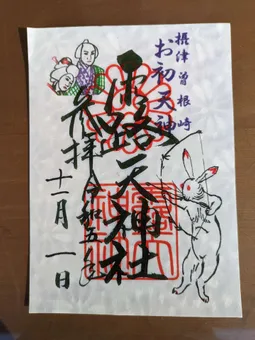 摂津曽根崎
お初天神
露天神社
参拝
令和五年
十一月一日